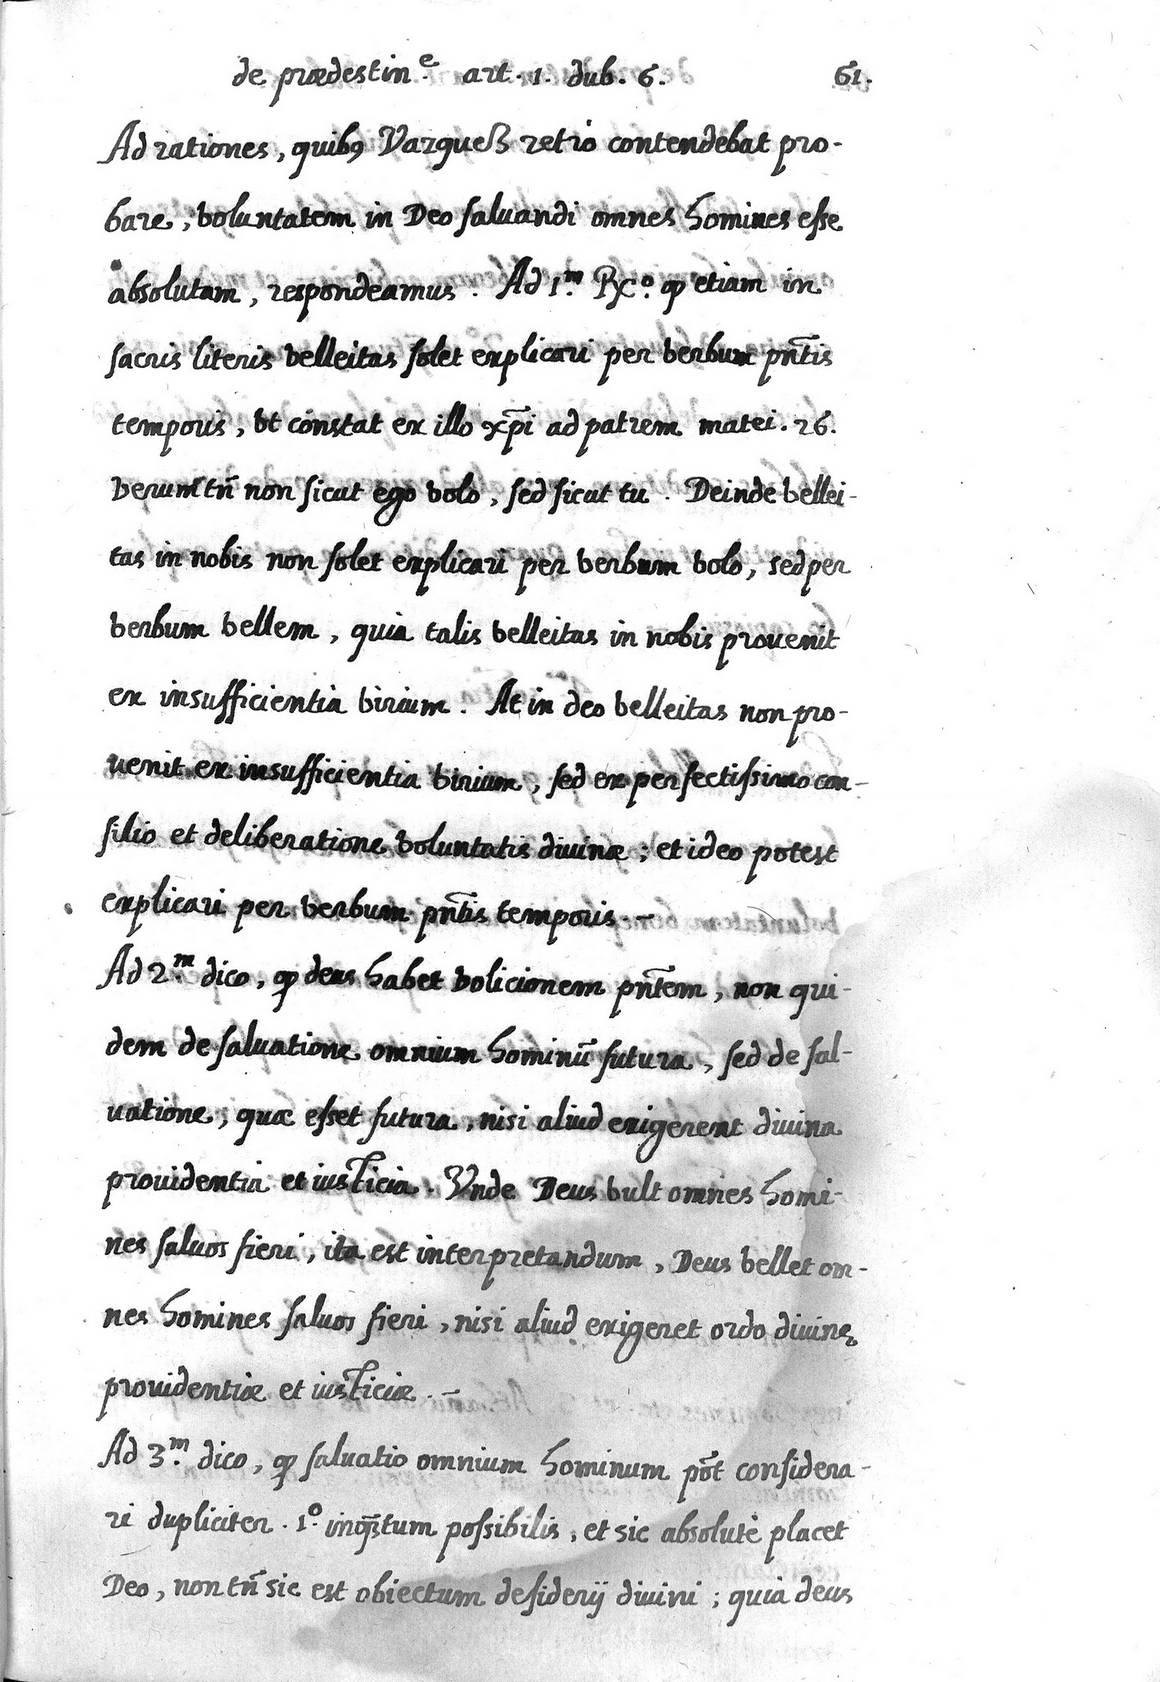 de prædestin.e art. 1. dub. 6. 61.
Ad rationes, quibꝯ Vazqueß retrò contendebat pro-
bare, voluntatem in Deo saluandi omnes homines esse
absolutam, respondeamus. Ad 1.m Rẏ.o ꝙ etiam in
sacris literis velleitas solet explicari per verbum pñtis
temporis, vt constat ex illo xp̃i ad patrem matei. 26.
verumtñ non sicut ego volo, sed sicut tu. Deinde vellei-
tas in nobis non solet explicari per verbum volo, sed per
verbum vellem, quia talis velleitas in nobis prouenit
ex insufficientia virium. At in deo velleitas non pro-
uenit ex insufficientia virium, sed ex perfectissimo con-
silio et deliberatione voluntatis diuinæ; et ideo potest
explicari per verbum pñtis temporis. -
Ad 2.m dico, ꝙ deus habet volicionem pñtem, non qui-
dem de saluatione omnium hominũ futura, sed de sal-
uatione, quæ esset futura, nisi aliud exigerent diuina
prouidentia et iusticia. Vnde Deus vult omnes homi-
nes saluos fieri, ita est interpretandum, Deus vellet om-
nes homines saluos fieri, nisi aliud exigeret ordo diuinę
prouidentiæ et iusticiæ. -
Ad 3.m dico, ꝙ saluatio omnium hominum põt considera-
ri dupliciter. 1.o inqꝫtum possibilis, et sic absolutè placet
Deo, non tñ sic est obiectum desiderij diuini; quia deus